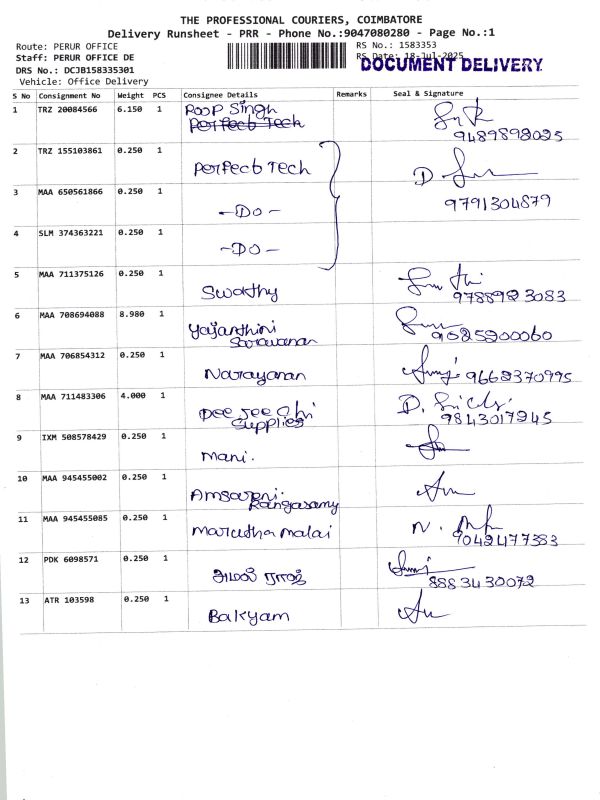 THE PROFESSIONAL COURIERS, COIMBATORE
Delivery Runsheet - PRR - Phone No.:9047080280 - Page No.:1
Route: PERUR OFFICE
RS No.: 1583353
Staff: PERUR OFFICE DE
RS Date: 18-Jul-2025
DOCUMENT DELIVERY
DRS No.: DCJB158335301
Vehicle: Office Delivery
S No Consignment No Weight PCS Consignee Details Remarks Seal & Signature
1 TRZ 20084566 6.150 1 Roop Singh
Perfect Tech
9489898025
2 TRZ 155103861 0.250 1 Perfect Tech
3 MAA 650561866 0.250 1 -Do- 9791304879
4 SLM 374363221 0.250 1 -Do-
5 MAA 711375126 0.250 1 Swathy 9788923083
6 MAA 708694088 8.980 1 Yajanthini
Saravanan
9025200060
7 MAA 706854312 0.250 1 Narayanan 9662370995
8 MAA 711483306 4.000 1 Dee Jee Chi
Supplies
9843017245
9 IXM 508578429 0.250 1 Mani.
10 MAA 945455002 0.250 1
Rangasamy
11 MAA 945455085 0.250 1 Marutha malai 9042477383
12 PDK 6098571 0.250 1 அமல் ராஜ் 8883430072
13 ATR 103598 0.250 1 Bakyam